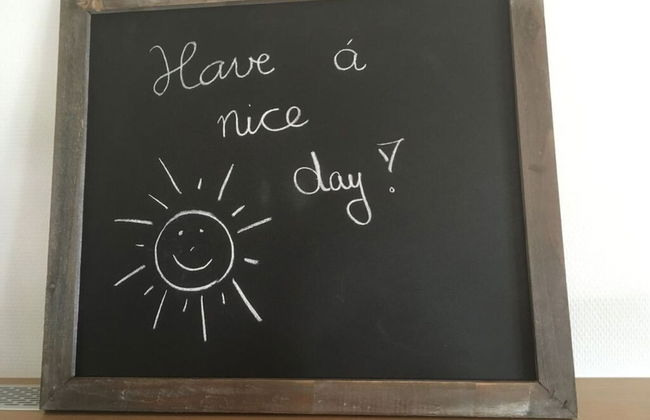 Have á
nice
day!